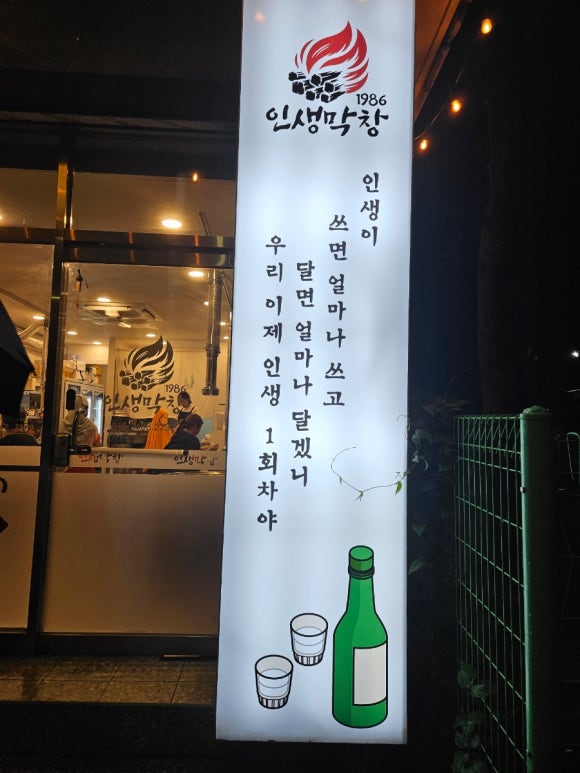 1986
인생막창
인생이
쓰면 얼마나 쓰고
달면 얼마나 달겠니
우리 이제 인생 1회차야
1986
인생막창
인생막창
인생막창